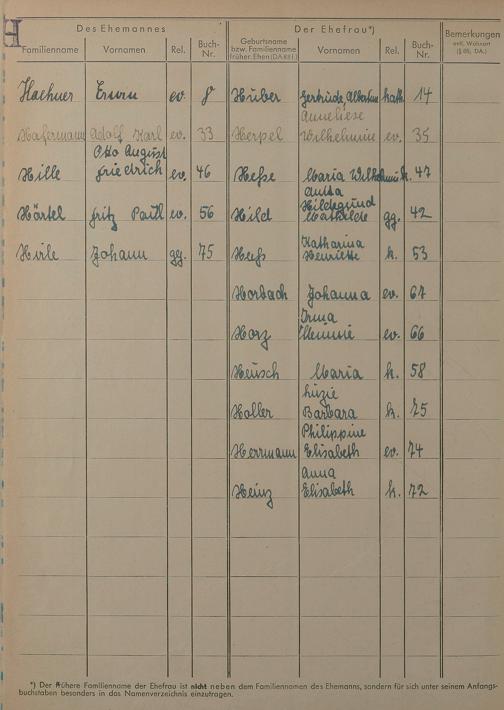 H
Des Ehemannes Der Ehefrau*) Bemerkungen
evtl. Wohnort
(§ 65, DA.)
Familienname Vornamen Rel. Buch-Nr. Geburtsname bzw. Familienname früher. Ehen (DA Rel. Vornamen Rel. Buch-Nr.
Hachner Erwin ev. 8 Huber Gertrude, Albertine kath. 14
Anneliese
Hafermann Adolf Karl ev. 33 Herpel Wilhelmine ev. 35
Otto August
Hille Friedrich ev. 46 Heße Maria Wilhelmine k. 47
Jutta
Hildegund
Härtel Fritz Paul ev. 56 Hild Mathilde gg. 42
Katharina
Hirle Johann gg. 75 Heß Henriette k. 53
Horbach Johanna ev. 67
Irma
Horz Minnie ev. 66
Heusch Maria k. 58
Luzie
Holler Barbara k. 75
Philippine
Herrmann Elisabeth ev. 74
Anna
Heinz Elisabeth k. 72
*) Der frühere Familienname der Ehefrau ist nicht neben dem Familiennamen des Ehemanns, sondern für sich unter seinem Anfangs-
buchstaben besonders in das Namenverzeichnis einzutragen.